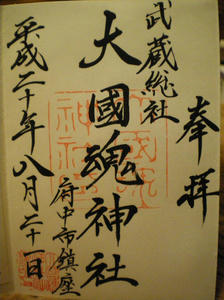 奉拝
武蔵総社
大國魂神社
府中市鎮座
平成二十年八月二十一日